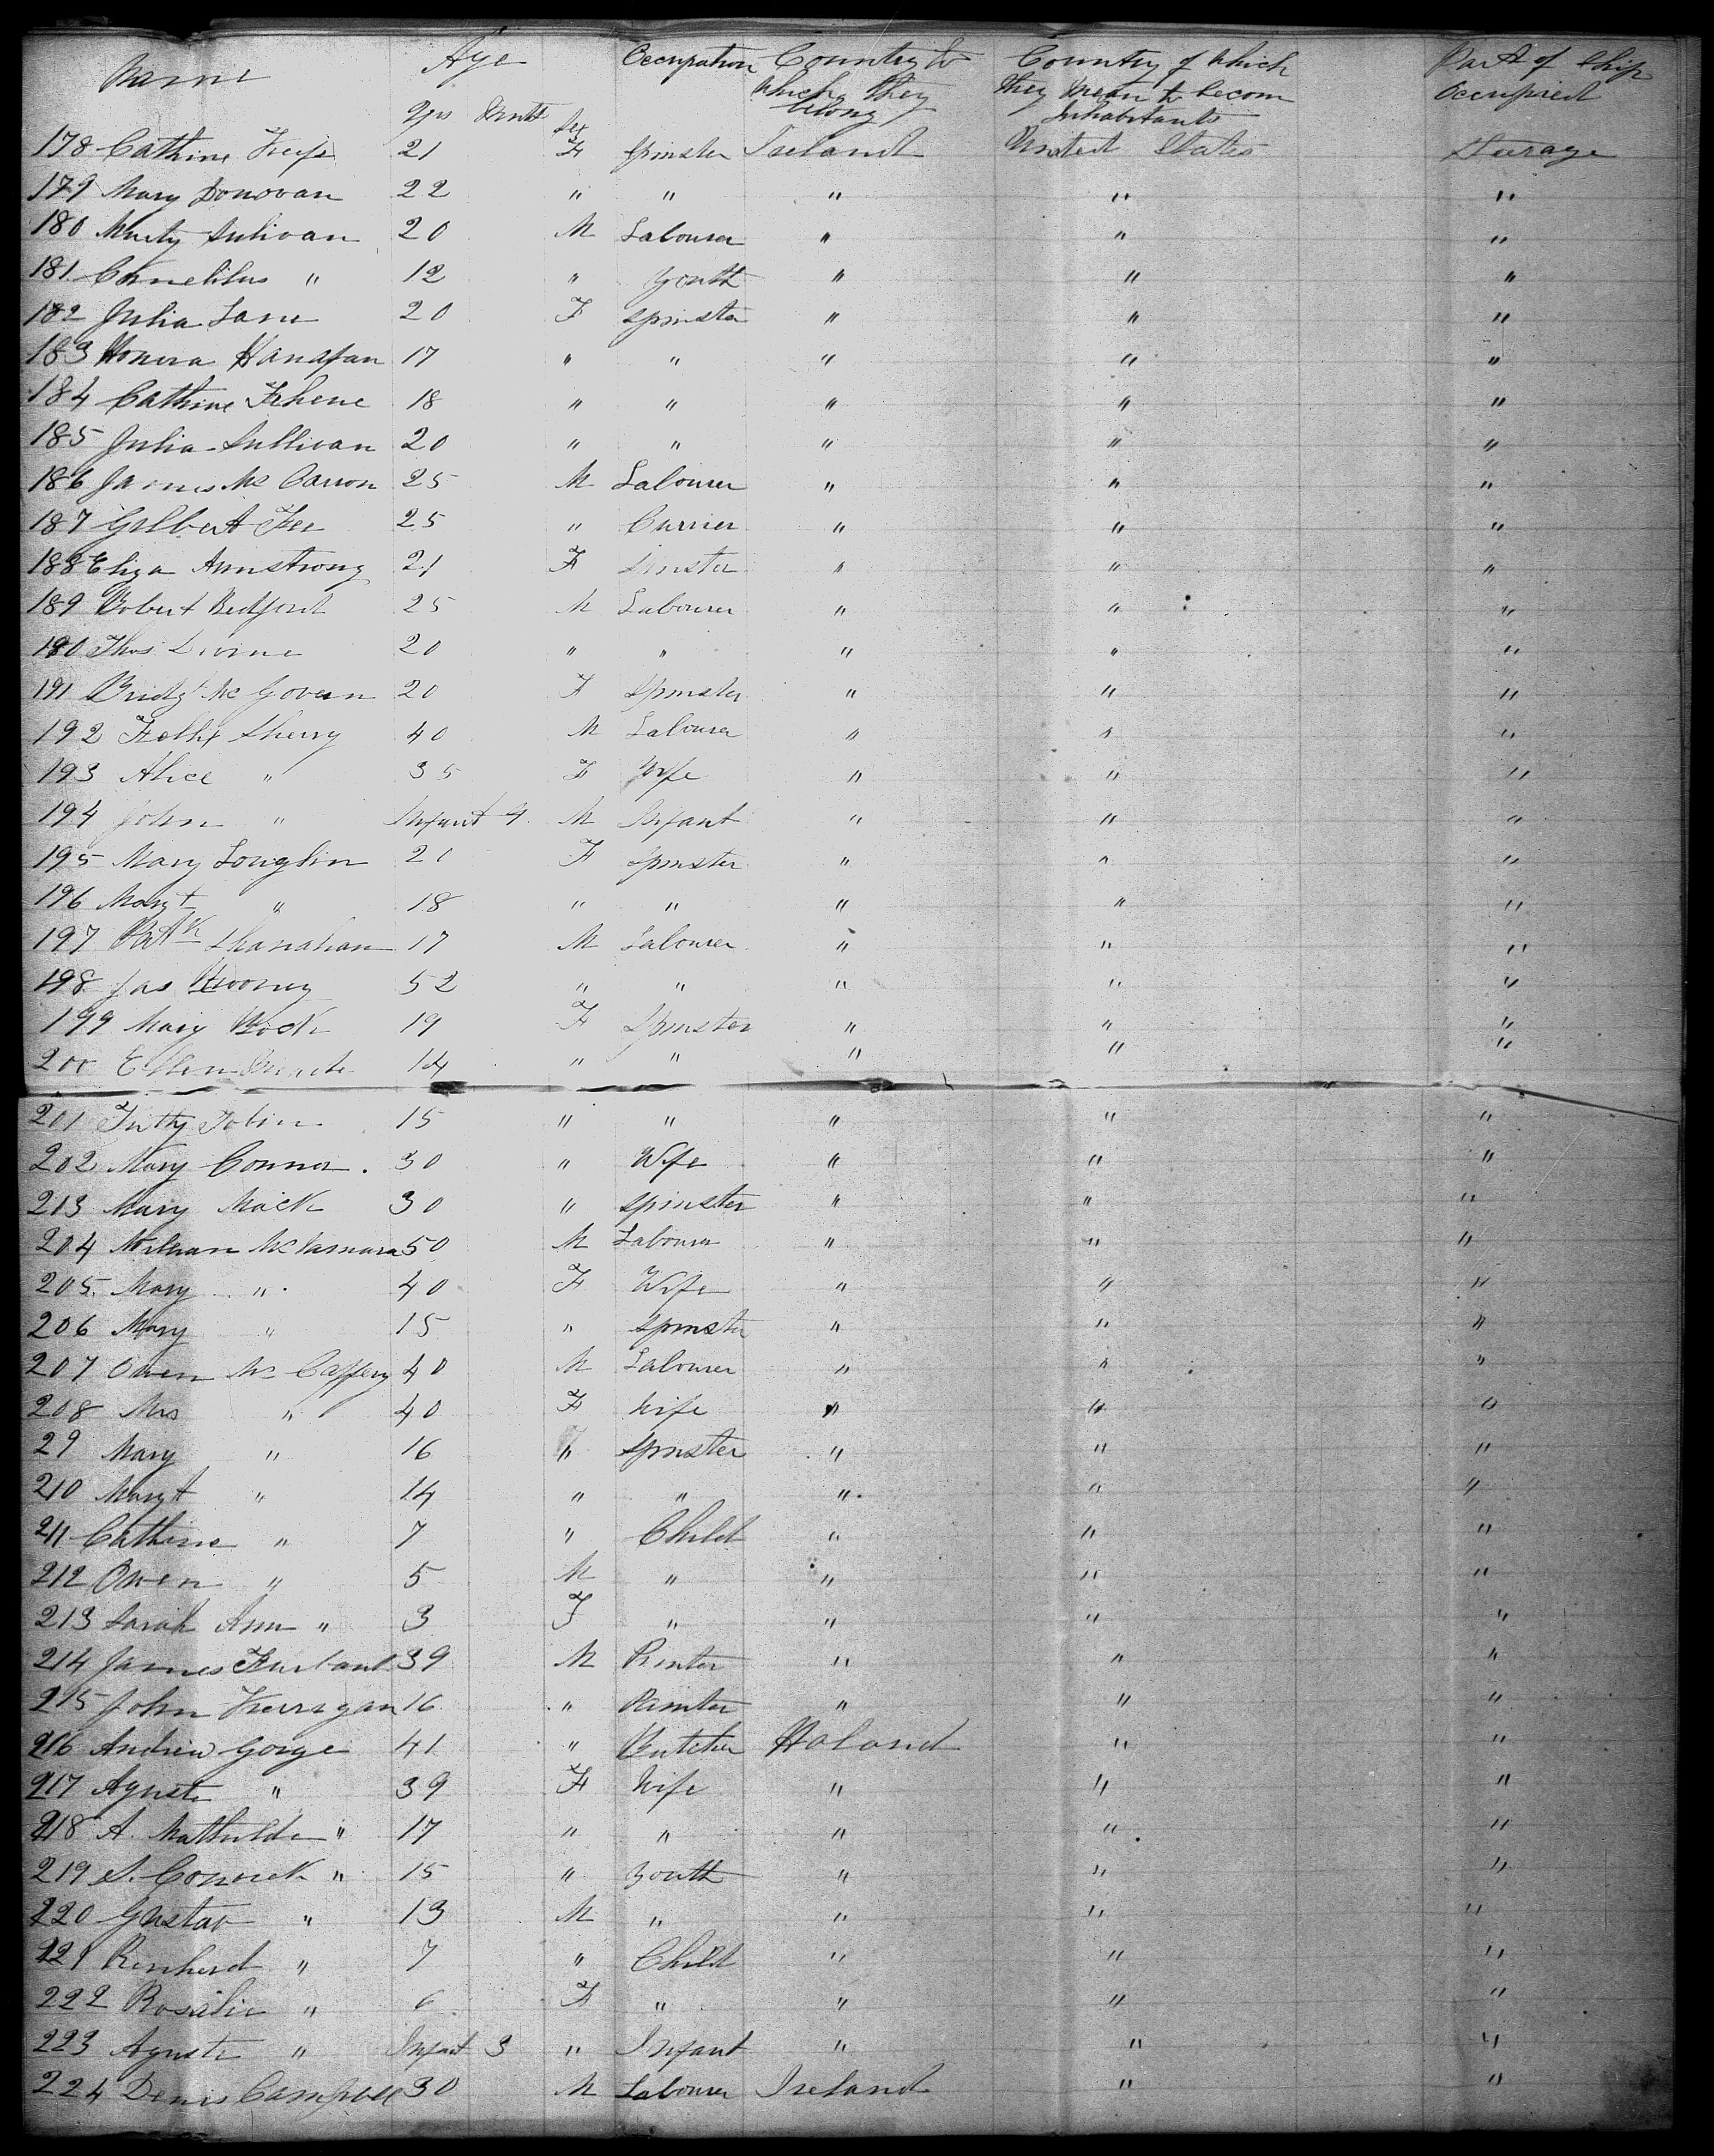 Name Age Occupation Country to which they belong Country of which they mean to becom Inhabitants Part of Ship Occupied
Yrs Mnth Sex
178 Cathine 21 F Spinster Ireland United States Steerage
179 Mary Donovan 22 " " " " "
180 Murty Sulivan 20 M Labourer " " "
181 Cornelius " 12 " Youth " " "
182 Julia Lane 20 F Spinster " " "
183 Honora Hanafan 17 " " " " "
184 Cathine 18 " " " " "
185 Julia Sullivan 20 " " " " "
186 James Mc Carron 25 M Labourer " " "
187 Gilbert Fee 25 " Currier " " "
188 Eliza Armstrong 21 F Sinster " " "
189 Robert Bedford 25 M Labourer " " "
190 Thos Divine 20 " " " " "
191 Bridgt Mc Govern 20 F Spinster " " "
192 Sherry 40 M Labourer " " "
193 Alice " 35 F Wife " " "
194 John " Infant 9 M Infant " " "
195 Mary Loughlin 21 F Spinster " " "
196 Margt " 18 " " " " "
197 Patk Shanahan 17 M Labourer " " "
198 Jas 52 " " " " "
199 Mary 19 F Spinster " " "
200 Ellen 14 " " " " "
201 Tobin 15 " " " " "
202 Mary Connor 30 " Wife " " "
213 Mary Mack 30 " Spinster " " "
204 McNamara 50 M Labourer " " "
205 Mary " 40 F Wife " " "
206 Mary " 15 " Spinster " " "
207 Owen Mc Caffery 40 M Labourer " " "
208 Mrs " 40 F Wife " " "
29 Mary " 16 " Spinster " " "
210 Margt " 14 " " " " "
211 Cathine " 7 " Child " " "
212 Owen " 5 M " " " "
213 Sarah Ann " 3 F " " " "
214 James 39 M Printer " " "
215 John Kerrigan 16 " Painter " " "
216 Andrew Gorge 41 " Butcher Holand " "
217 Aguste " 39 F Wife " " "
218 A. Mathilde " 17 " " " " "
219 " 15 " Youth " " "
220 Gustav " 13 M " " " "
221 Renherd " 7 " Child " " "
222 Rosalie " 6 F " " " "
223 Aguste " Infant 3 " Infant " " "
224 Denis Campbell 30 M Labourer Ireland " "